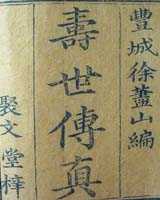 豐城徐薑山編
壽世傳真
聚文堂梓